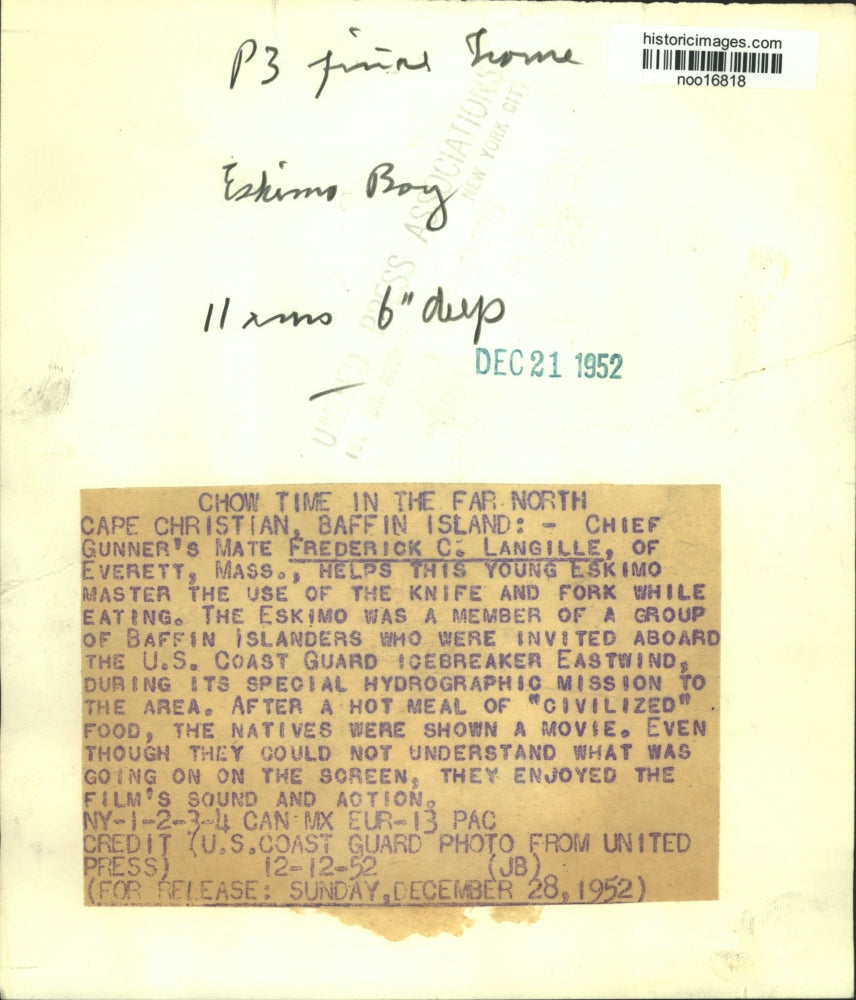 historicimages.com
noo16818
P3 final Home
Eskimo Boy
11 ems 6" deep
DEC 21 1952
UNITED PRESS ASSOCIATIONS
NEW YORK CITY
CHOW TIME IN THE FAR NORTH
CAPE CHRISTIAN, BAFFIN ISLAND: - CHIEF
GUNNER'S MATE FREDERICK C. LANGILLE, OF
EVERETT, MASS., HELPS THIS YOUNG ESKIMO
MASTER THE USE OF THE KNIFE AND FORK WHILE
EATING. THE ESKIMO WAS A MEMBER OF A GROUP
OF BAFFIN ISLANDERS WHO WERE INVITED ABOARD
THE U.S. COAST GUARD ICEBREAKER EASTWIND,
DURING ITS SPECIAL HYDROGRAPHIC MISSION TO
THE AREA. AFTER A HOT MEAL OF "CIVILIZED"
FOOD, THE NATIVES WERE SHOWN A MOVIE. EVEN
THOUGH THEY COULD NOT UNDERSTAND WHAT WAS
GOING ON ON THE SCREEN, THEY ENJOYED THE
FILM'S SOUND AND ACTION.
NY-1-2-3-4 CAN MX EUR-13 PAC
CREDIT (U.S.COAST GUARD PHOTO FROM UNITED
PRESS) 12-12-52 (JB)
(FOR RELEASE: SUNDAY,DECEMBER 28,1952)